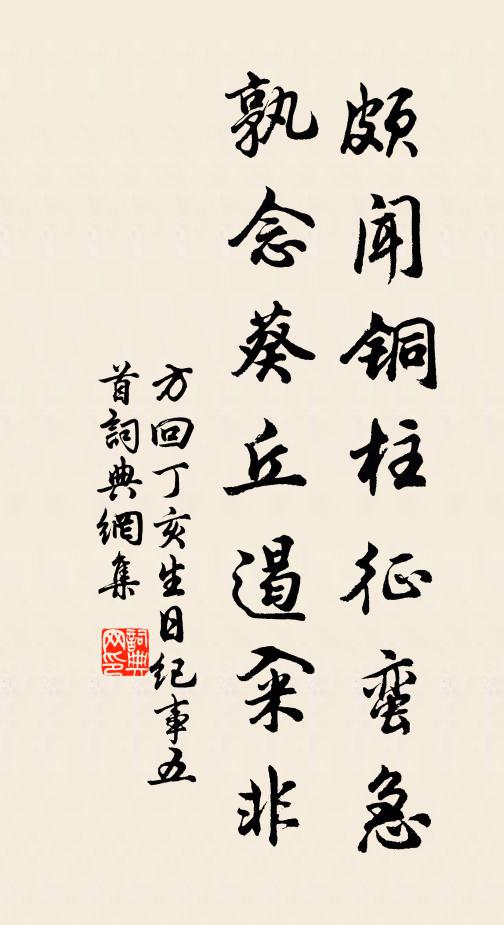 頗聞銅柱征蛮急
孰念葵丘遏籴非
方回丁亥生日纪事五
首詞典網集
詞典網印